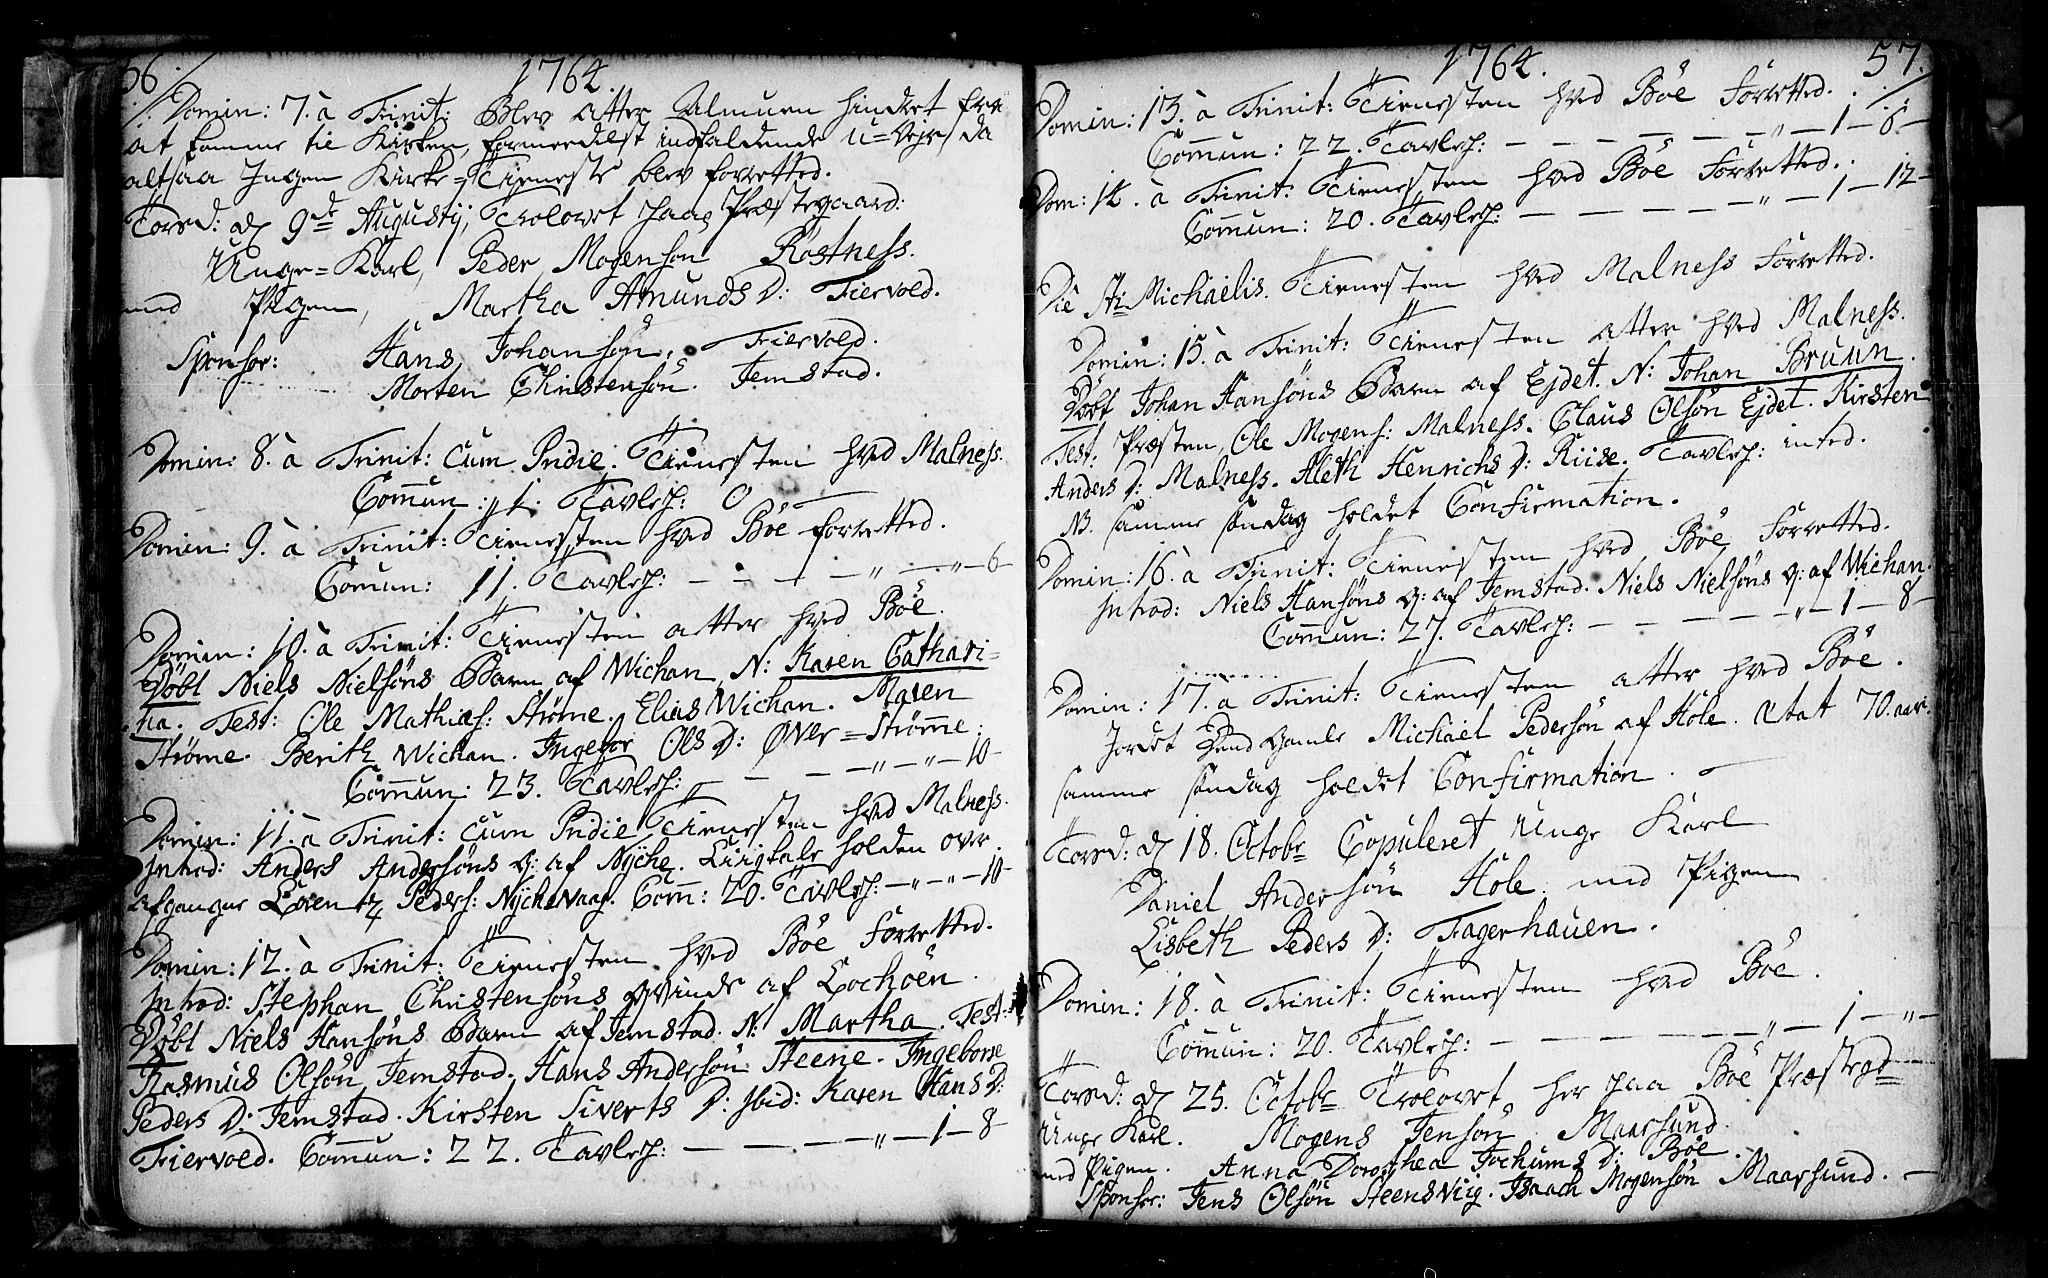 56.
1764.
Domin: 7. à Trinit: Blev atter Almuen hindret fra
at komme til Kirken, formedelst indfaldende U-Vejr, da
altsaa Ingen Kirke-Tieneste blev forretted.
Torsd: d 9de Augustij, Trolovet paa Præstegaard:
Unge-Karl, Peder Mogensøn Røstness.
med Pigen, Martha Amunds D: Fiervold.
Sponsor: Hans Johansøn, Fiervold.
Morten Christensøn. Jemstad.
Domin: 8. à Trinit: Cum Pridie. Tienesten hved Malness.
Comun: 4. Tavlep: 0
Domin: 9. à Trinit: Tienesten hved Bøe forretted.
Comun: 11. Tavlep: — — — — " — " — 6 —
Domin: 10. à Trinit: Tienesten atter hved Bøe.
Døbt Niels Nielsøns Barn af Wichan, N: Karen Cathari-
na. Test: Ole Mathias: Strøme. Elias Wichan. Maren
Strøme. Berith Wichan. Ingebor Ols D: Øver-Strøme.
Comun: 23. Tavlep: — — — — " — " — 10 —
Domin: 11. à Trinit: Cum Pridie Tienesten hved Malness.
Introd: Anders Andersøns Q: af Nyche. Liigtale holden over
afgangne Lorentz Peders: Nyche Comm: 20. Tavlep: — " — " — 10 —
Domin: 12. à Trinit: Tienesten hved Bøe Forretted.
Introd: Stephan Christensøns Qvinde af Lochøen.
Døbt Niels Hansøns Barn af Jemstad. N: Martha. Test:
Rasmus Olsøn Jemstad. Hans Andersøn Steene. Ingebore
Peders D: Jemstad. Kirsten Siverts D: Ibid: Karen Hans D:
Fiervold. Comun: 22. Tavlep: — — — — " — 1 — 8 —
1764.
57.
Domin: 13. à Trinit: Tienesten hved Bøe Forretted.
Comun: 22. Tavlep: — — — — — " — 1 — 6 —
Dom: 14. à Trinit: Tienesten hved Bøe Forretted.
Comun: 20. Tavlep: — — — — — " — 1 — 12 —
Die Sti Michaelis. Tienesten hved Malness Forretted.
Domin: 15. à Trinit: Tienesten atter hved Malness.
Døbt Johan Hansøns Barn af Ejdet. N: Johan Bruun.
Test: Præsten, Ole Mogens: Malness. Claus Olsøn Ejdet. Kirsten
Anders D: Malness. Aleth Henrichs D: Riise. Tavlep: inted.
NB. samme søndag holdet Confirmation.
Domin: 16. à Trinit: Tienesten hved Bøe Forretted.
Introd: Niels Hansøns Q: af Jemstad. Niels Nielsøns Q: af Wichan.
Comun: 27. Tavlep: — — — — — " — 1 — 8 —
Domin: 17. à Trinit: Tienesten atter hved Bøe.
Jordet Gamle Michael Pedersøn af Hole. Ætat 70. aar.
samme søndag holdet Confirmation.
Torsd: d 18. Octobr Copuleret Unge Karl
Daniel Andersøn Hole med Pigen
Lisbeth Peders D: Fagerhauen.
Domin: 18. à Trinit: Tienesten hved Bøe.
Comun: 20. Tavlep: — — — — — " — 1 — " —
Torsd: d 25. Octobr Trolovet her paa Bøe Præstegd
Unge Karl. Mogens Jensøn Maarsund.
med Pigen. Anna Dorothea Jochums D: Bøe.
Sponsor: Jens Olsøn Steensviig. Isaach Mogensøn Maarsund. —